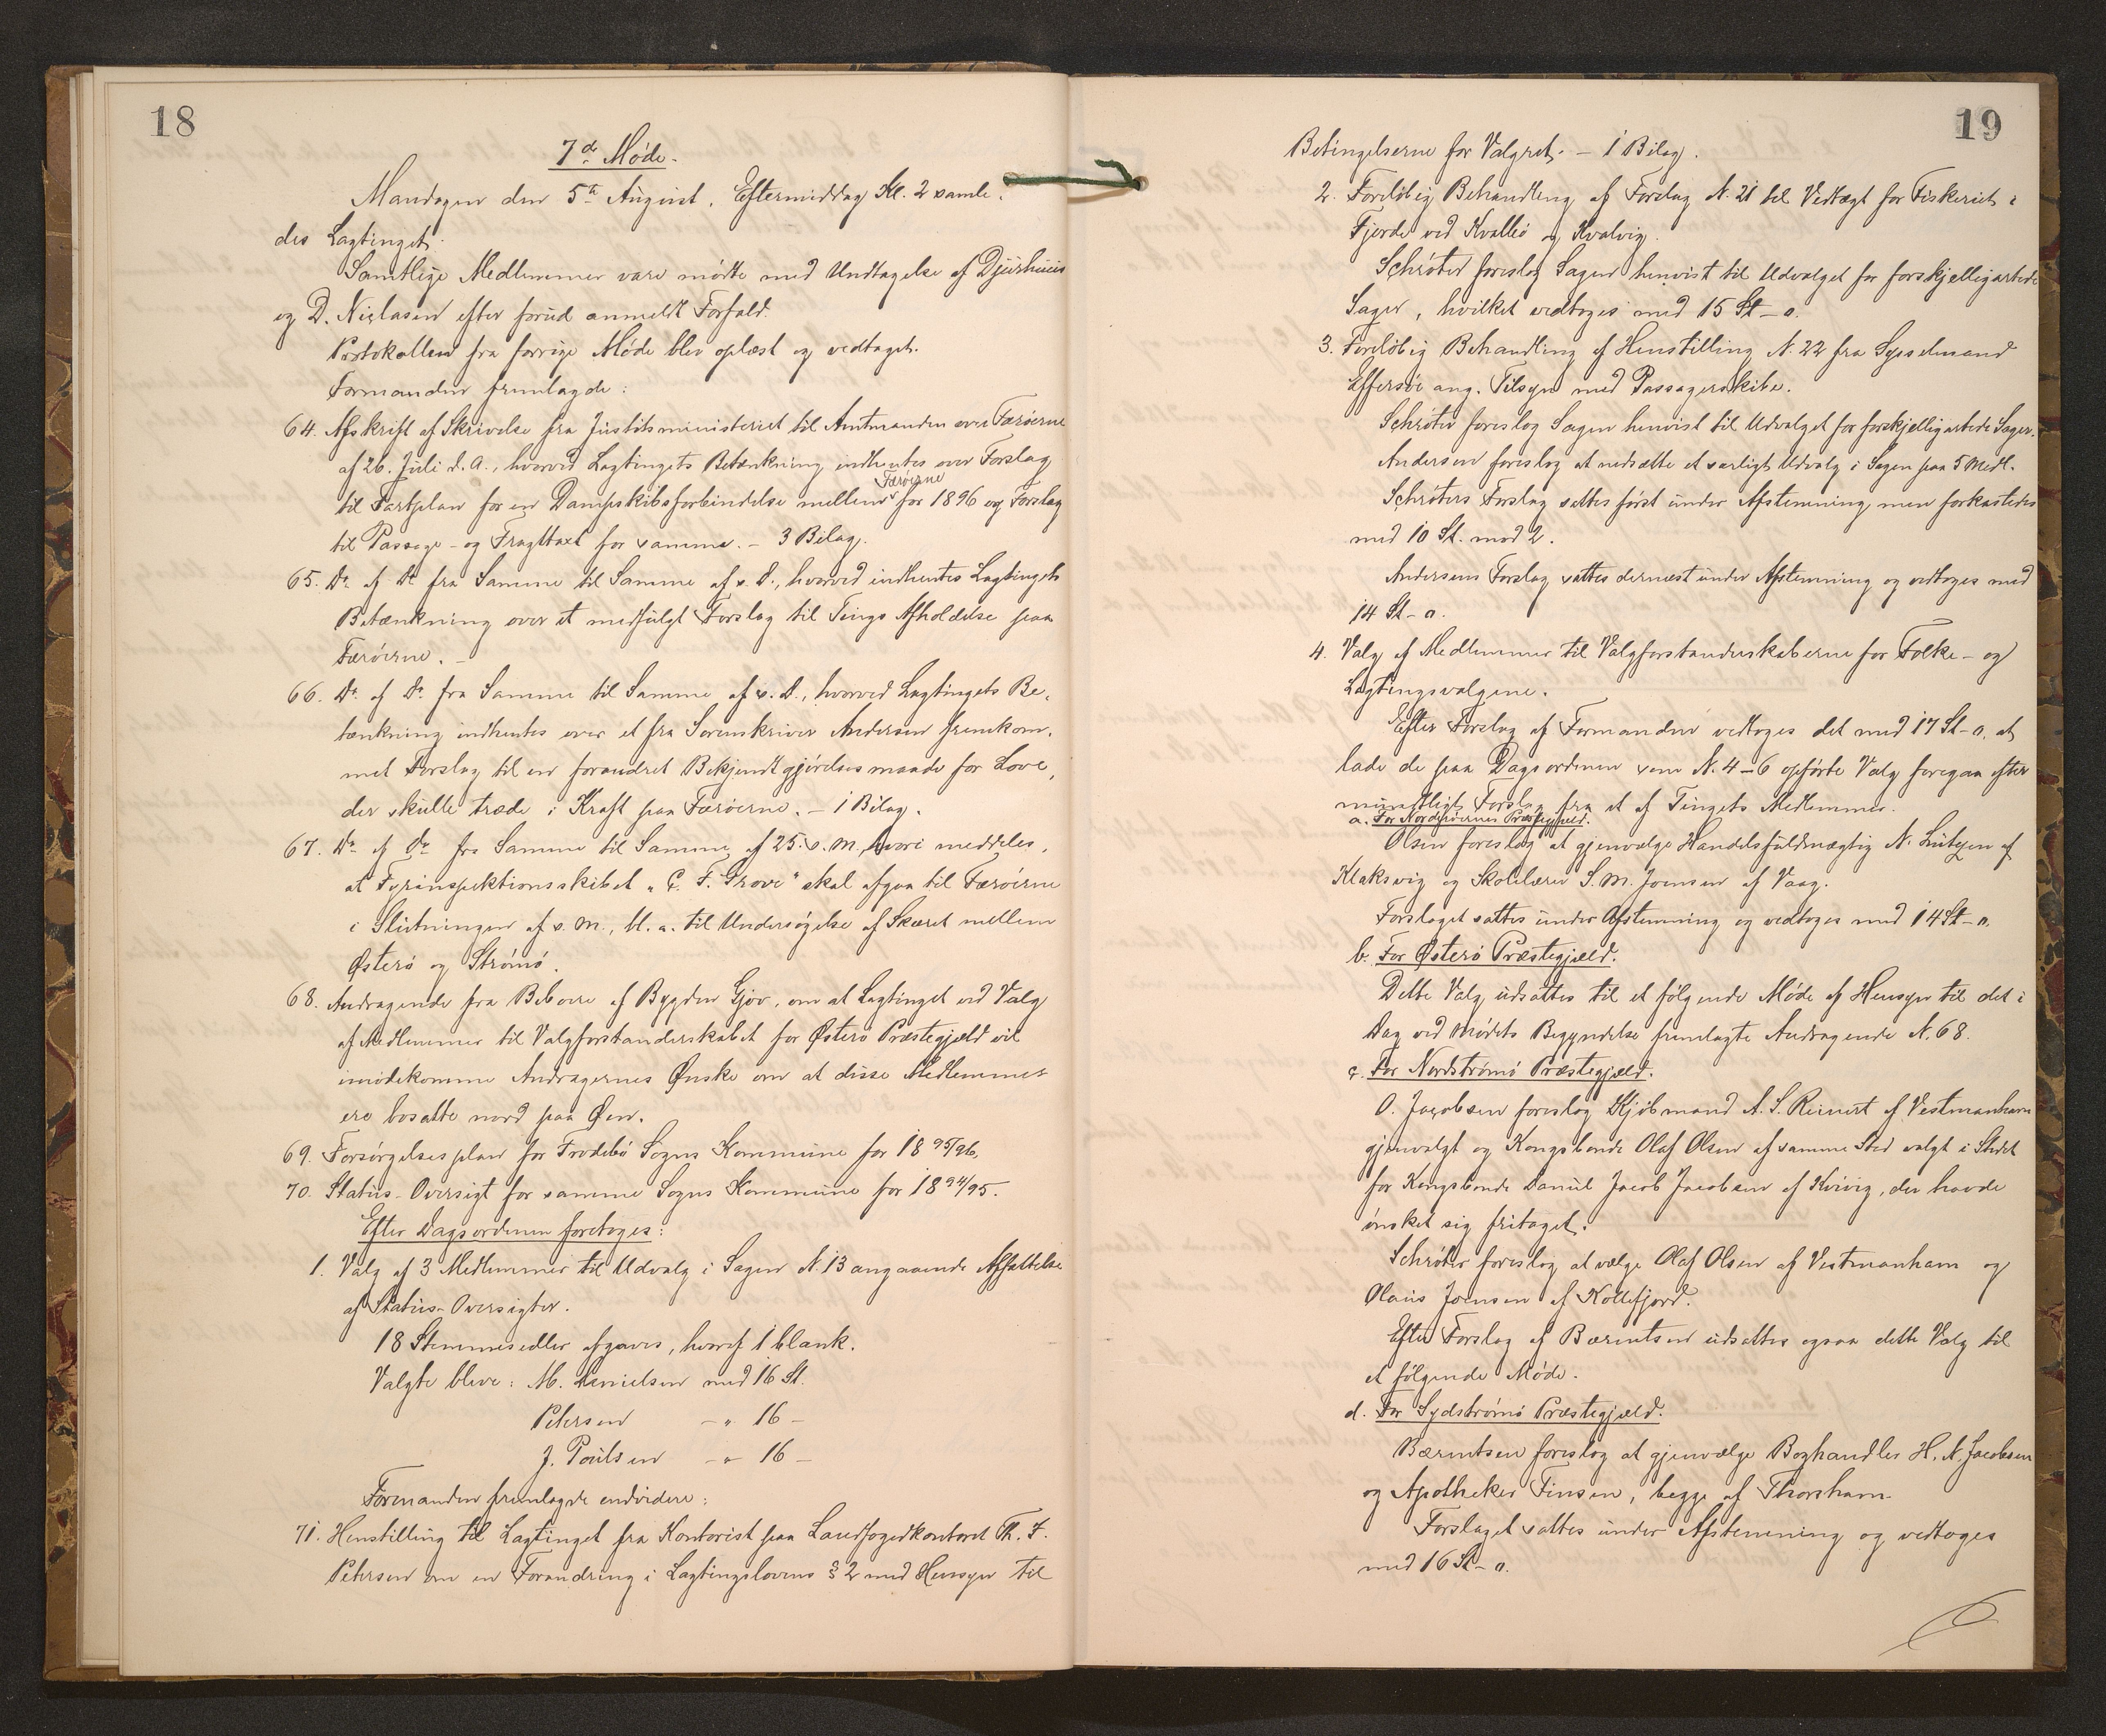 18
7de Møde.
Mandagen den 5te August, Eftermiddag Kl. 2 samle-
des Lagtinget.
Samtlige Medlemmer vare mødte med Undtagelse af Djurhuus
og D. Niclasen efter forud anmeldt Forfald.
Protokollen fra forrige Møde blev oplæst og vedtaget.
Formanden fremlagde:
64. Afskrift af Skrivelse fra Justitsministeriet til Amtmanden over Færøerne
af 26. Juli d. A., hvorved Lagtingets Betænkning indhentes over Forslag
Færøerne
til Fartplan for en Dampskibsforbindelse mellem for 1896 og Forslag
til Passage- og Fragttaxt for samme. - 3 Bilag.
65. Do. af Do. fra Samme til Samme af s. D., hvorved indhentes Lagtingets
Betænkning over et medfulgt Forslag til Tings Afholdelse paa
Færøerne. -
66. Do. af Do. fra Samme til Samme af s. D., hvorved Lagtingets Be-
tænkning indhentes over et fra Sorenskriver Andersen fremkom-
met Forslag til en forandret Bekjendtgjørelsesmaade for Love,
der skulle træde i Kraft paa Færøerne. - 1 Bilag.
67. Do. af Do. fra Samme til Samme af 25. s. M., hvori meddeles,
at Fyrinspektionsskibet "C. F. Grove" skal afgaa til Færøerne
i Slutningen af s. M., bl. a. til Undersøgelse af Skæret mellem
Østerø og Strømø.
68. Andragende fra Beboere af Bygden Gjov, om at Lagtinget ved Valg
af Medlemmer til Valgforstanderskabet for Østerø Præstegjæld vil
imødekomme Andragernes Ønske om at disse Medlemmer
ere bosatte nord paa Øen.
69. Forsørgelsesplan for Frodebø Sogns Kommune for 1895/96.
70. Status-Oversigt for samme Sogns Kommune for 1894/95.
Efter Dagsordenen foretoges:
1. Valg af 3 Medlemmer til Udvalg i Sagen N. 13 angaaende Affattelse
af Status-Oversigter.
18 Stemmesedler afgaves, hvoraf 1 blank.
Valgte bleve: M. Danielsen med 16 St.
Petersen - " 16 -
J. Poulsen - " 16 -
Formanden fremlagde endvidere:
71. Henstilling til Lagtinget fra Kontorist paa Landfogedkontoret Th. F.
Petersen om en Forandring i Lagtingslovens § 2 med Hensyn til
19
Betingelserne for Valgret. - 1 Bilag.
2. Foreløbig Behandling af Forslag N. 21 til Vedtægt for Fiskeriet i
Fjorde ved Kvalbø og Kvalvig.
Schrøter foreslog Sagen henvist til Udvalget for forskjelligartede
Sager, hvilket vedtoges med 15 St - o.
3. Foreløbig Behandling af Henstilling N. 22 fra Sysselmand
Effersøe ang. Tilsyn med Passagerskibe.
Schrøter foreslog Sagen henvist til Udvalget for forskjelligartede Sager.
Andersen foreslog at nedsætte et særligt Udvalg i Sagen paa 5 Medl.
Schrøters Forslag sattes først under Afstemning men forkastedes
med 10 St. mod 2.
Andersens Forslag sattes dernæst under Afstemning og vedtoges med
14 St - o.
4. Valg af Medlemmer til Valgforstanderskaberne for Folke- og
Lagtingsvalgene.
Efter Forslag af Formanden vedtoges det med 17 St - o, at
lade de paa Dagsordenen som N. 4-6 opførte Valg foregaa efter
mundtligt Forslag fra et af Tingets Medlemmer.
a. For Norderøernes Præstegjæld.
Olsen foreslog at gjenvælge Handelsfuldmægtig N. Lützen af
Klaksvig og Skolelærer S. M. Joensen af Vaag.
Forslaget sattes under Afstemning og vedtoges med 14 St - o.
b. For Østerø Præstegjæld.
Dette Valg udsattes til et følgende Møde af Hensyn til det i
Dag ved Mødets Begyndelse fremlagte Andragende N. 68.
c. For Nordstrømø Præstegjæld.
O. Jacobsen foreslog Kjøbmand A. S. Reinert af Vestmanhavn
gjenvalgt og Kongsbonde Olaf Olsen af samme Sted valgt i Stedet
for Kongsbonde Daniel Jacob Jacobsen af Kvivig, der havde
ønsket sig fritaget.
Schrøter foreslog at vælge Olaf Olsen af Vestmanhavn og
Olaus Joensen af Kollefjord.
Efter Forslag af Bærentsen udsattes ogsaa dette Valg til
et følgende Møde.
d. For Sydstrømø Præstegjæld.
Bærentsen foreslog at gjenvælge Boghandler H. N. Jacobsen
og Apotheker Finsen, begge af Thorshavn.
Forslaget sattes under Afstemning og vedtoges
med 16 St - o.